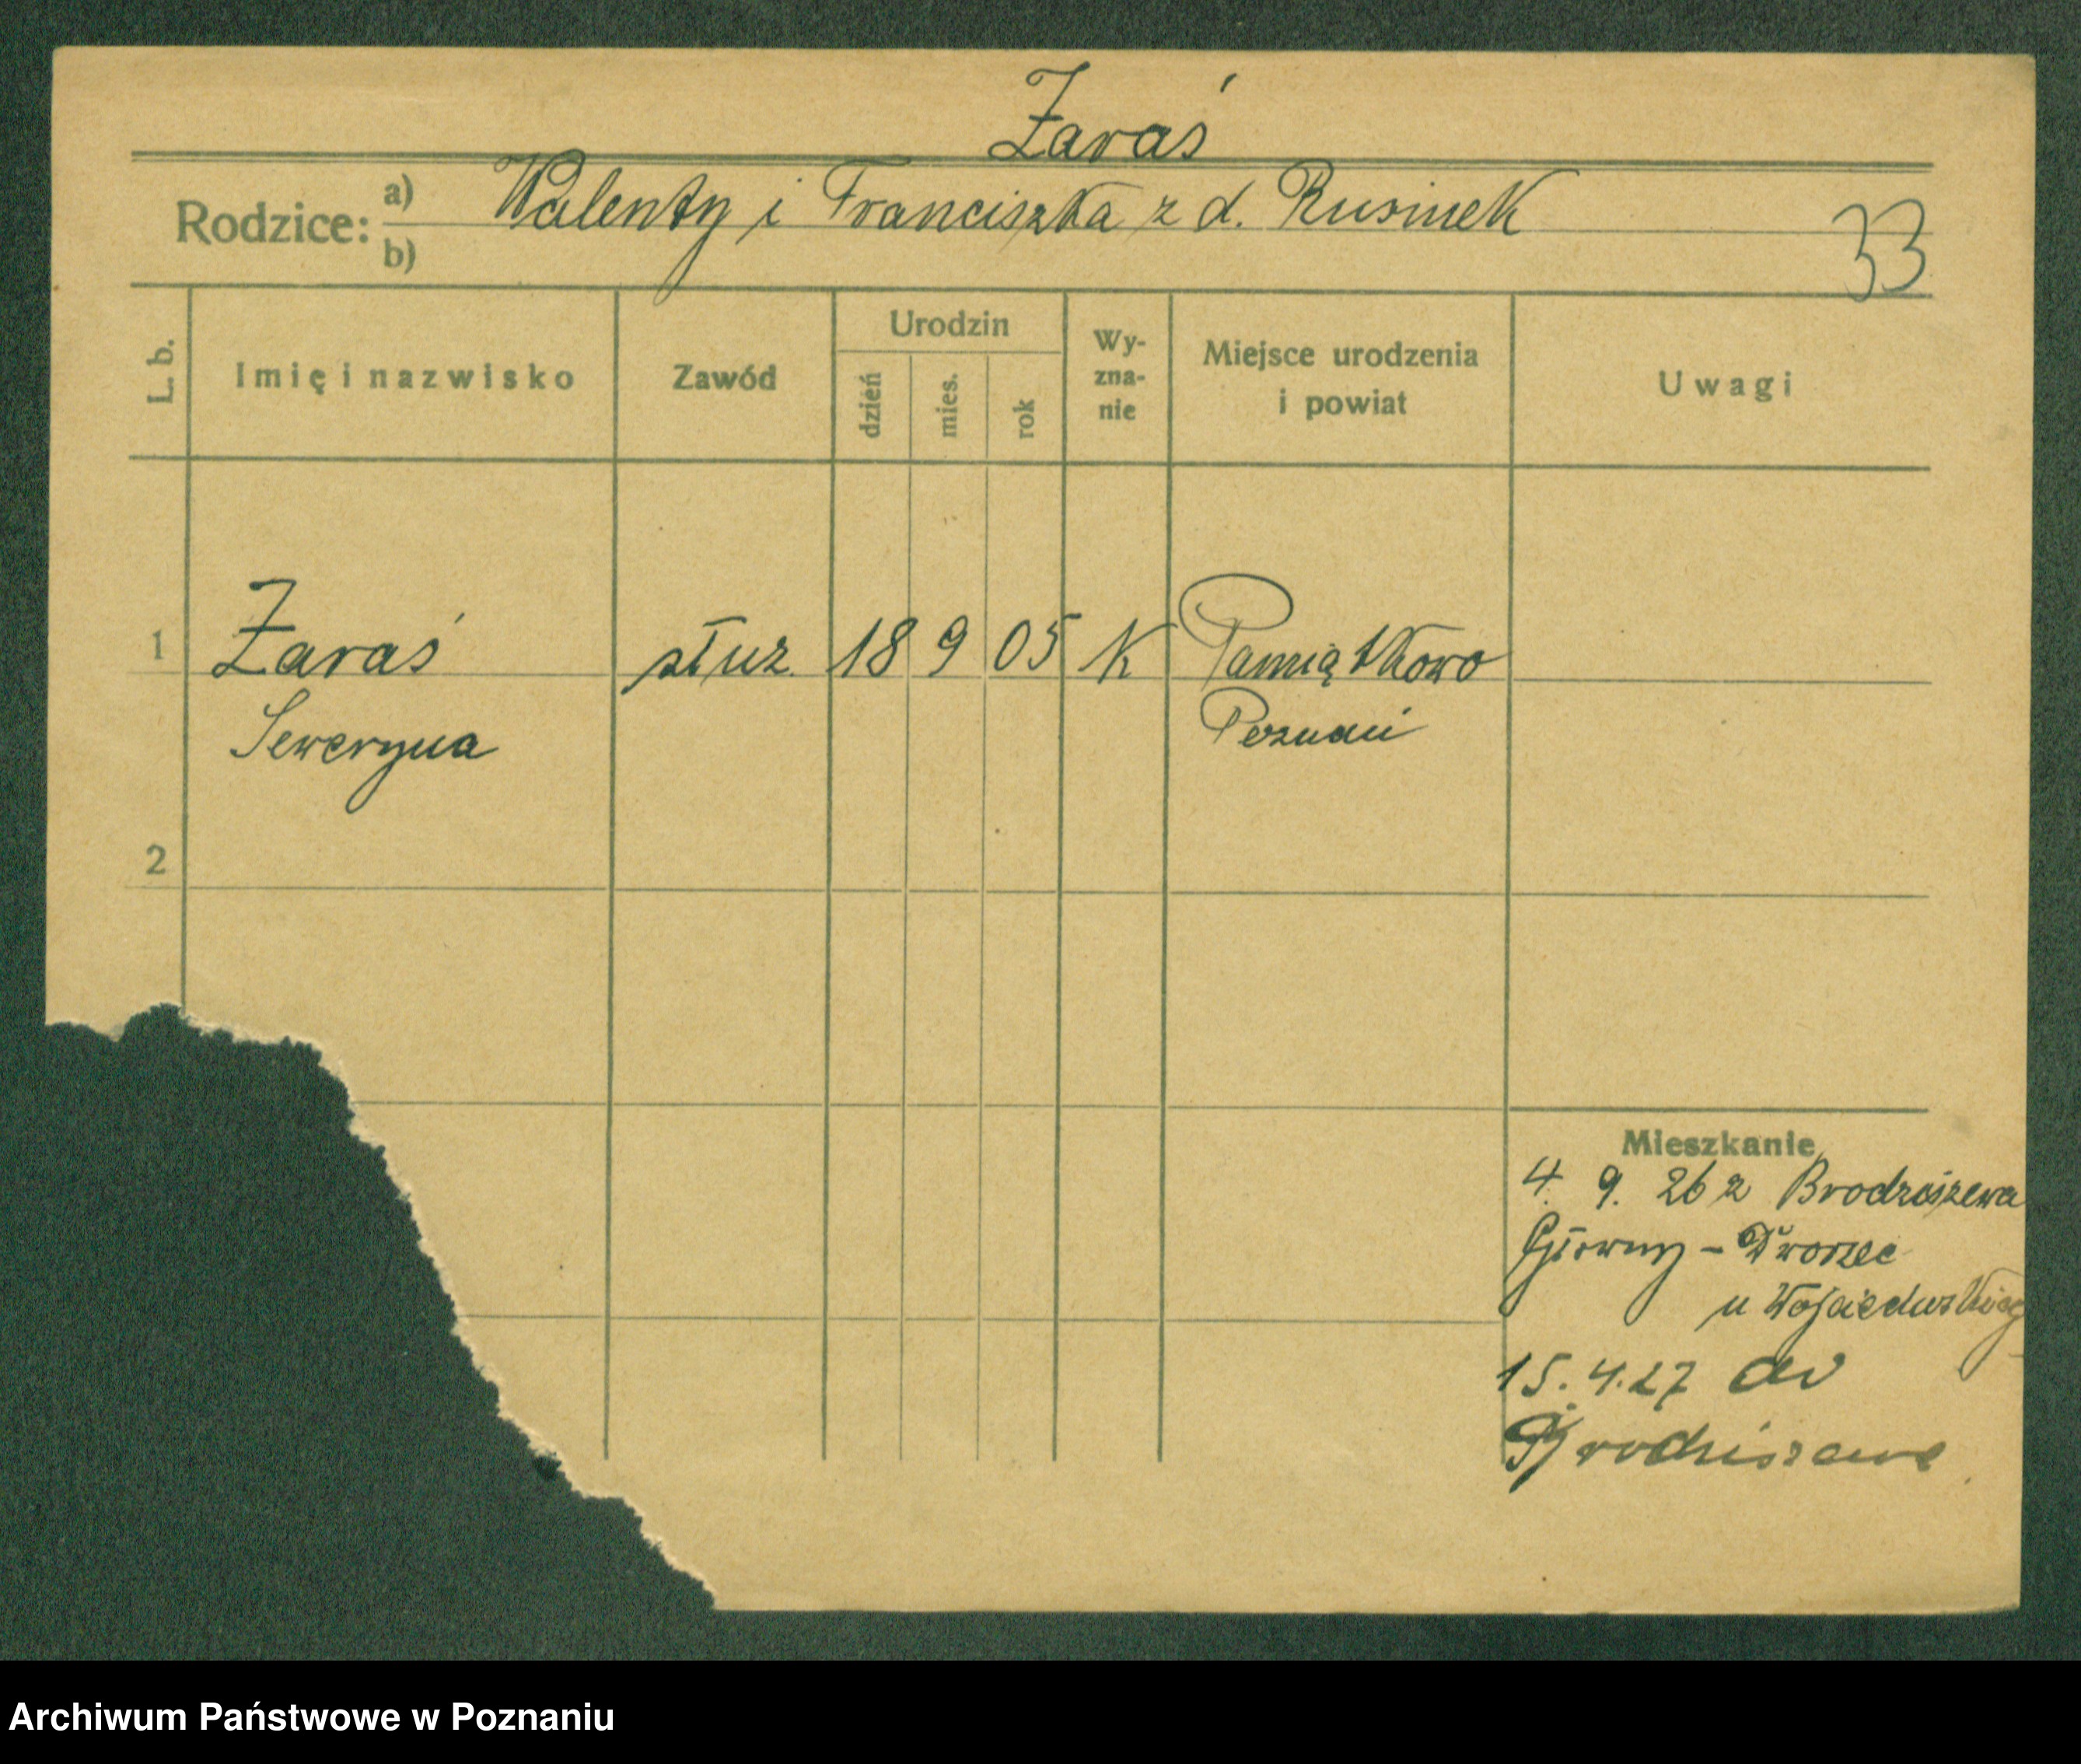 Żaraś
Rodzice: a) Walenty i Franciszka z d. Rusinek
b)
33
L. b. Imię i nazwisko Zawód Urodzin dzień mies. rok Wy-zna-nie Miejsce urodzenia i powiat Uwagi
1 Żaraś służ. 18 9 05 K Pamiątkowo
Seweryna Poznań
2
Mieszkanie
4. 9. 26 z Brodziszewa
Główny - Dworzec
u
15. 4. 27 do
Brodziszewa
Archiwum Państwowe w Poznaniu